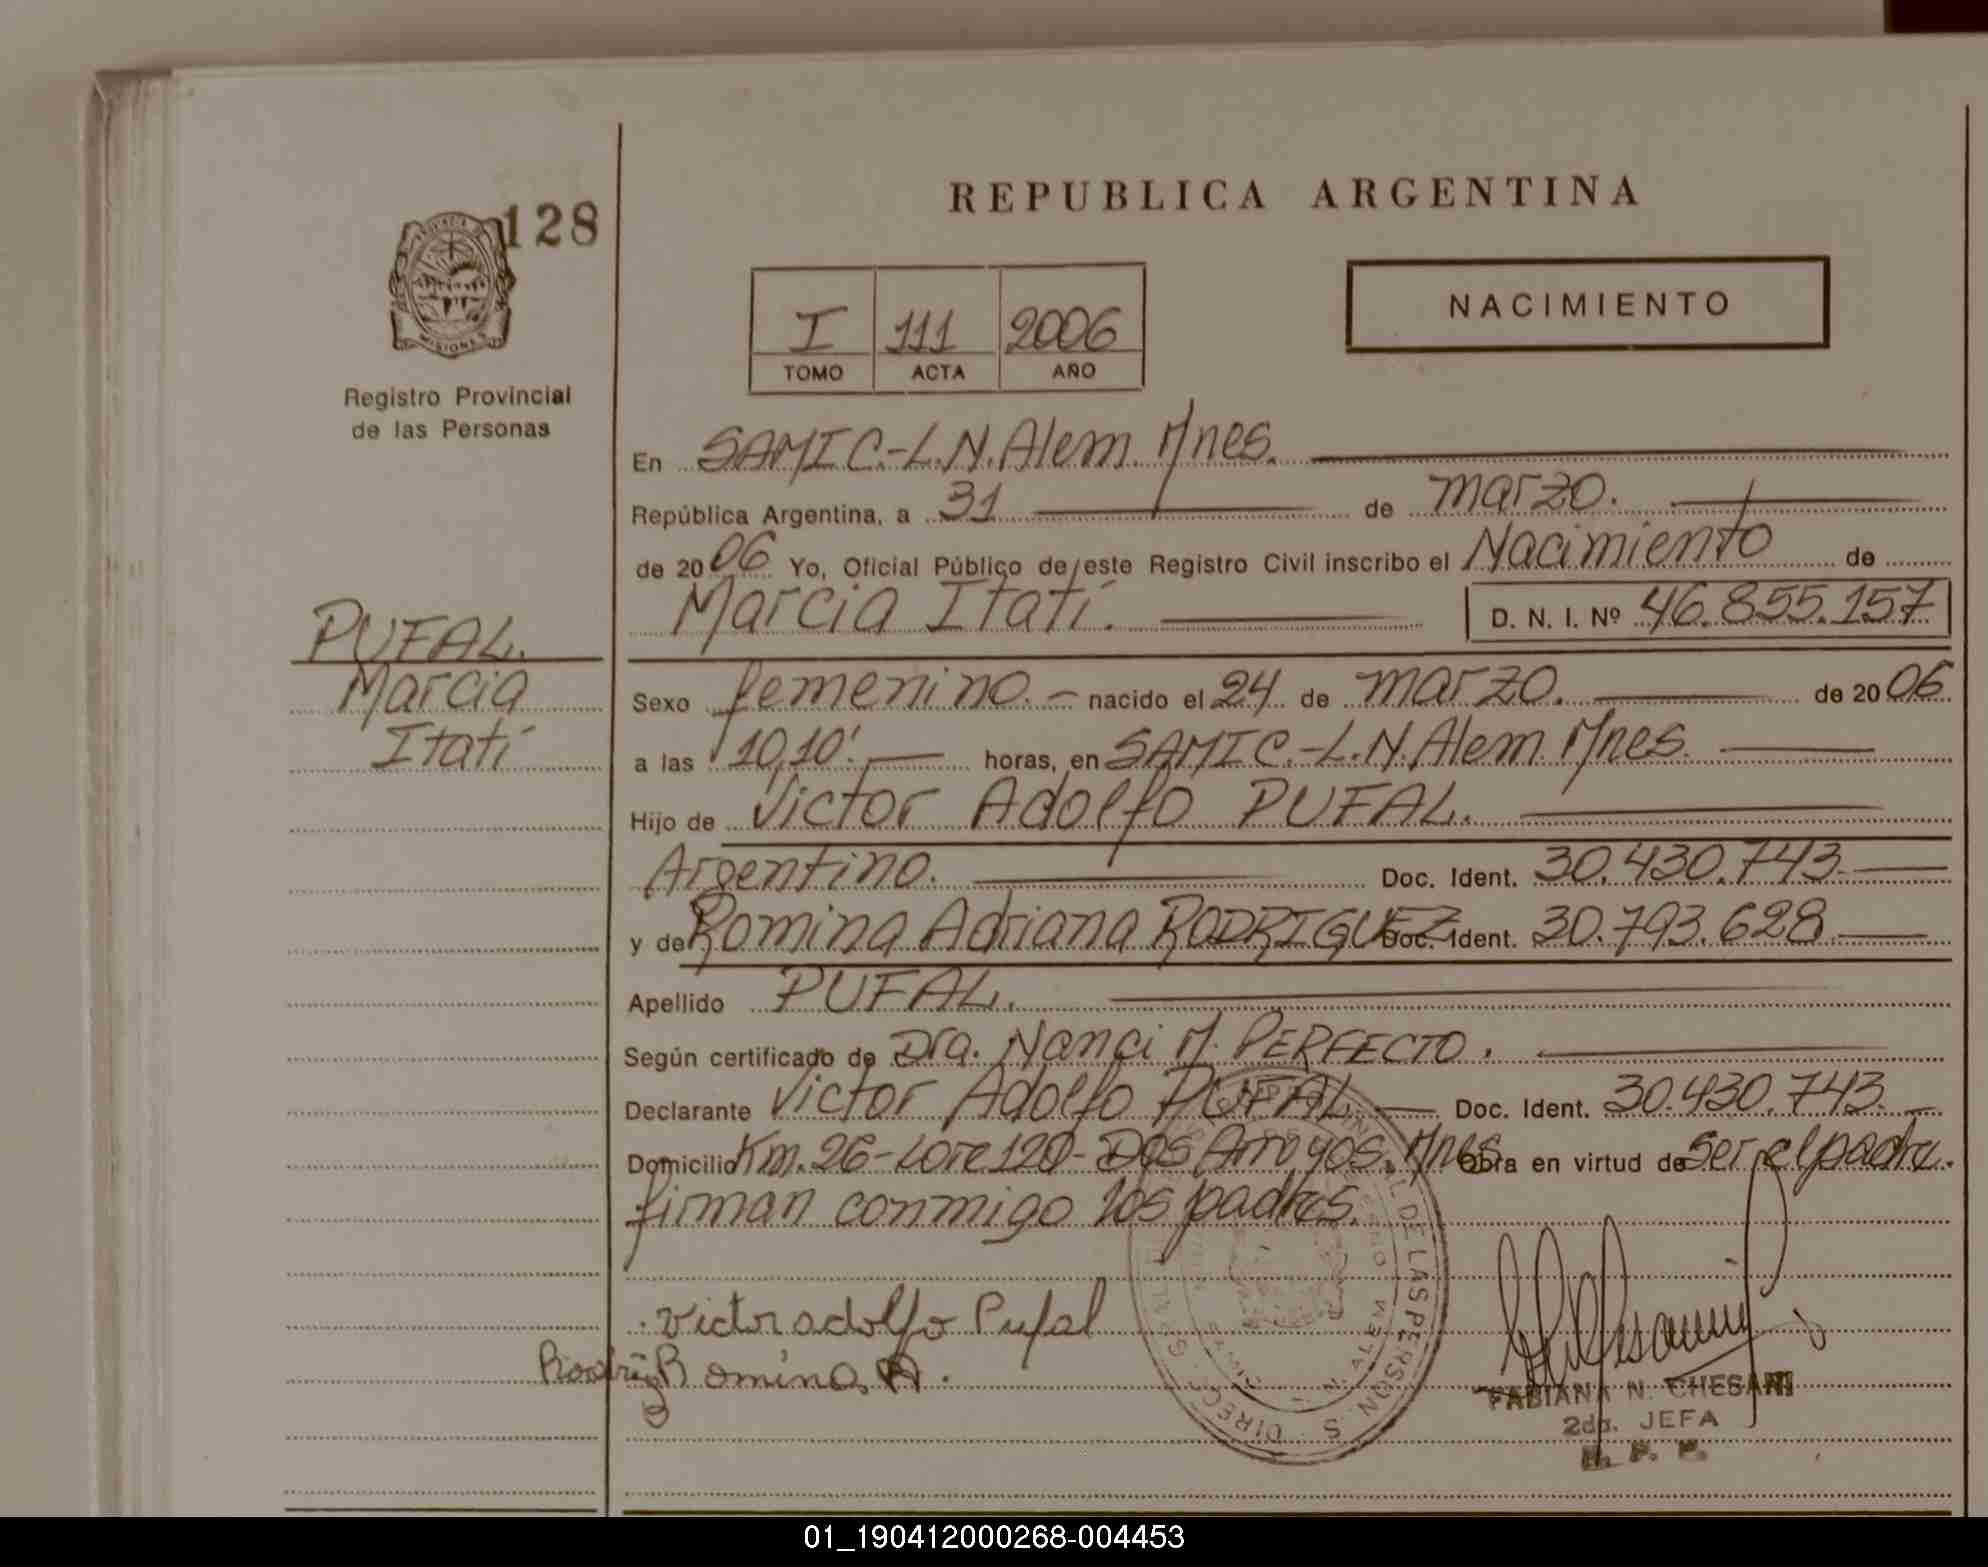 128
REPUBLICA ARGENTINA
NACIMIENTO
I 111 2006
TOMO ACTA AÑO
MISIONES
Registro Provincial
de las Personas
En SAMIC.-L.N.Alem. Mnes.
República Argentina, a 31 de marzo.
de 2006 Yo, Oficial Público de este Registro Civil inscribo el Nacimiento de
Marcia Itatí. D. N. I. Nº 46.855.157
PUFAL.
Marcia
Itatí
Sexo femenino.- nacido el 24 de marzo. de 2006
a las 10,10'. horas, en SAMIC.-L.N.Alem. Mnes.
Hijo de Victor Adolfo PUFAL.
Argentino. Doc. Ident. 30.430.743.
y de Romina Adriana RODRIGUEZ Doc. Ident. 30.793.628
Apellido PUFAL.
Según certificado de Dra. Nanci M. PERFECTO.
Declarante Victor Adolfo PUFAL Doc. Ident. 30.430.743.
Domicilio Km.26-Lote 120-Dos Arroyos. Mnes Obra en virtud de ser el padre.
firman conmigo los padres.
victor adolfo Pufal
Romina A.
FABIANA N. CHESANI
2da. JEFA
01_190412000268-004453